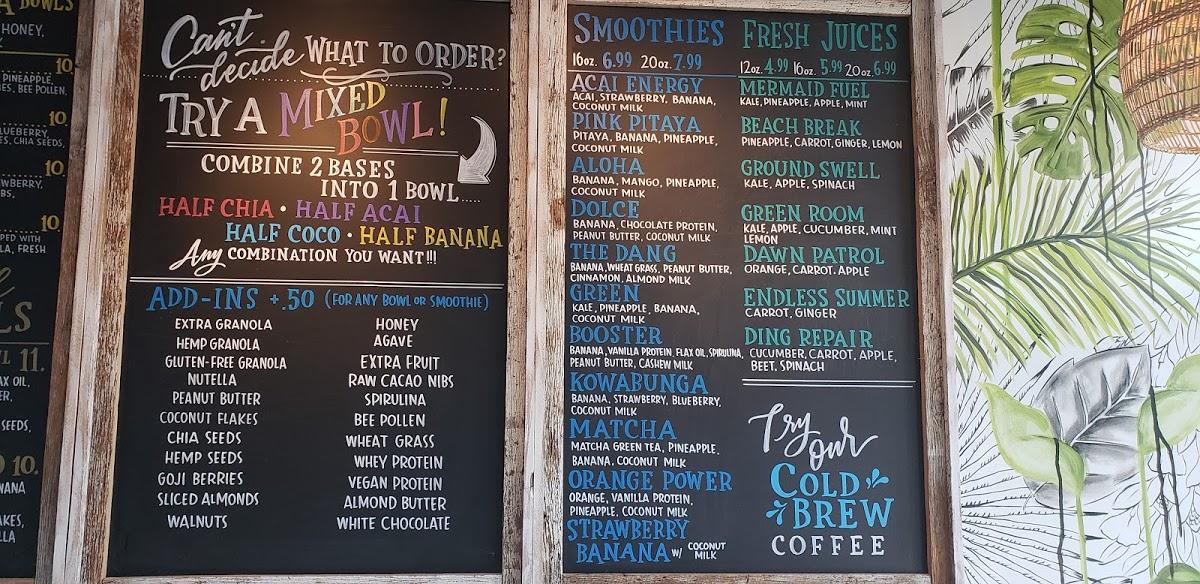 A BOWLS
HONEY,
10
PINEAPPLE,
BEE POLLEN,
10.
BLUEBERRY,
CHIA SEEDS,
10.
10.
PED WITH
FRESH
LS
11.
OIL,
SEEDS,
10.
Can't decide WHAT TO ORDER?
TRY A MIXED
BOWL!
COMBINE 2 BASES
INTO 1 BOWL.....
HALF CHIA • HALF ACAI
HALF COCO • HALF BANANA
Any COMBINATION YOU WANT!!!
ADD-INS +.50 (FOR ANY BOWL OR SMOOTHIE)
EXTRA GRANOLA
HEMP GRANOLA
GLUTEN-FREE GRANOLA
NUTELLA
PEANUT BUTTER
COCONUT FLAKES
CHIA SEEDS
HEMP SEEDS
GOJI BERRIES
SLICED ALMONDS
WALNUTS
HONEY
AGAVE
EXTRA FRUIT
RAW CACAO NIBS
SPIRULINA
BEE POLLEN
WHEAT GRASS
WHEY PROTEIN
VEGAN PROTEIN
ALMOND BUTTER
WHITE CHOCOLATE
SMOOTHIES
16oz. 6.99 20oz. 7.99
ACAI ENERGY
ACAI, STRAWBERRY, BANANA,
COCONUT MILK
PINK PITAYA
PITAYA, BANANA, PINEAPPLE,
COCONUT MILK
ALOHA
BANANA, MANGO, PINEAPPLE,
COCONUT MILK
DOLCE
BANANA, CHOCOLATE PROTEIN,
PEANUT BUTTER, COCONUT MILK
THE DANG
BANANA, WHEAT GRASS, PEANUT BUTTER,
CINNAMON, ALMOND MILK
GREEN
KALE, PINEAPPLE, BANANA,
COCONUT MILK
BOOSTER
BANANA, VANILLA PROTEIN, FLAX OIL, SPIRULINA,
PEANUT BUTTER, CASHEW MILK
KOWABUNGA
BANANA, STRAWBERRY, BLUEBERRY,
COCONUT MILK
MATCHA
MATCHA GREEN TEA, PINEAPPLE,
BANANA, COCONUT MILK
ORANGE POWER
ORANGE, VANILLA PROTEIN,
PINEAPPLE, COCONUT MILK
STRAWBERRY
BANANA W/ COCONUT
MILK
FRESH JUICES
12oz. 4.99 16oz. 5.99 20oz. 6.99
MERMAID FUEL
KALE, PINEAPPLE, APPLE, MINT
BEACH BREAK
PINEAPPLE, CARROT, GINGER, LEMON
GROUND SWELL
KALE, APPLE, SPINACH
GREEN ROOM
KALE, APPLE, CUCUMBER, MINT
LEMON
DAWN PATROL
ORANGE, CARROT, APPLE
ENDLESS SUMMER
CARROT, GINGER
DING REPAIR
CUCUMBER, CARROT, APPLE,
BEET, SPINACH
Try
Our
COLD
BREW
COFFEE